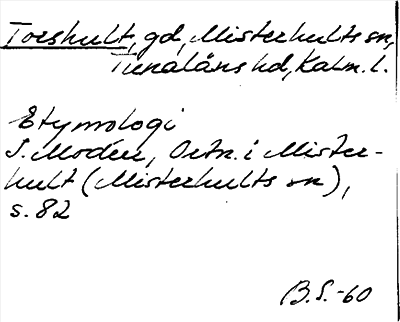 Torshult, gd, Misterhults sn,
Tunaläns hd, Kalm. l.
Etymologi
I. Modéer, Ortn. i Mister-
hult (Misterhults sn),
s. 82
B.S.-60